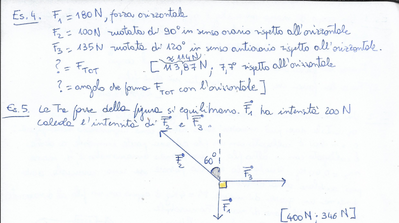 Es.4. F₁ = 180N, forza orizzontale
F₂ = 100N ruotata di 90° in senso orario rispetto all'orizzontale
F₃ = 135N ruotata di 120° in senso antiorario rispetto all'orizzontale.
? = F_TOT [113,87N; 7,7° rispetto all'orizzontale
≈114N
? = angolo che forma F_TOT con l'orizzontale]
Es.5. La Tre forze della figura si equilibrano. F₁ ha intensità 200N
calcola l'intensità di F₂ e F₃.
60°
F₂
F₃
F₁
[400N; 346N]